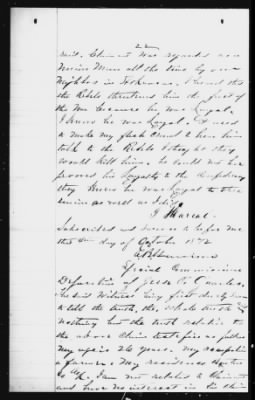 22
said. Claimant was regarded as a
Union Man all the time by our
Neighbors in Arkansas. I heard that
the Rebels threatened him the first of
the War because he was Loyal.
I know he was Loyal. It used
to make my flesh crawl to hear him
talk to the Rebels I thought they
would kill him. he could not have
proved his loyalty to the Confederacy
they knew he was Loyal to the
Union as well as I did.
Subscribed and sworn to before me
this day of October 1872
Special Commissioner
Deposition of Jesse
Said Witness being first duly sworn
to tell the truth, the whole truth &
nothing but the truth relative to
the above Claim testifies as follows
My age is 26 years. My occupation
a farmer. My residence
Ark. I am not related to Claimant
and have no interest in his Claim